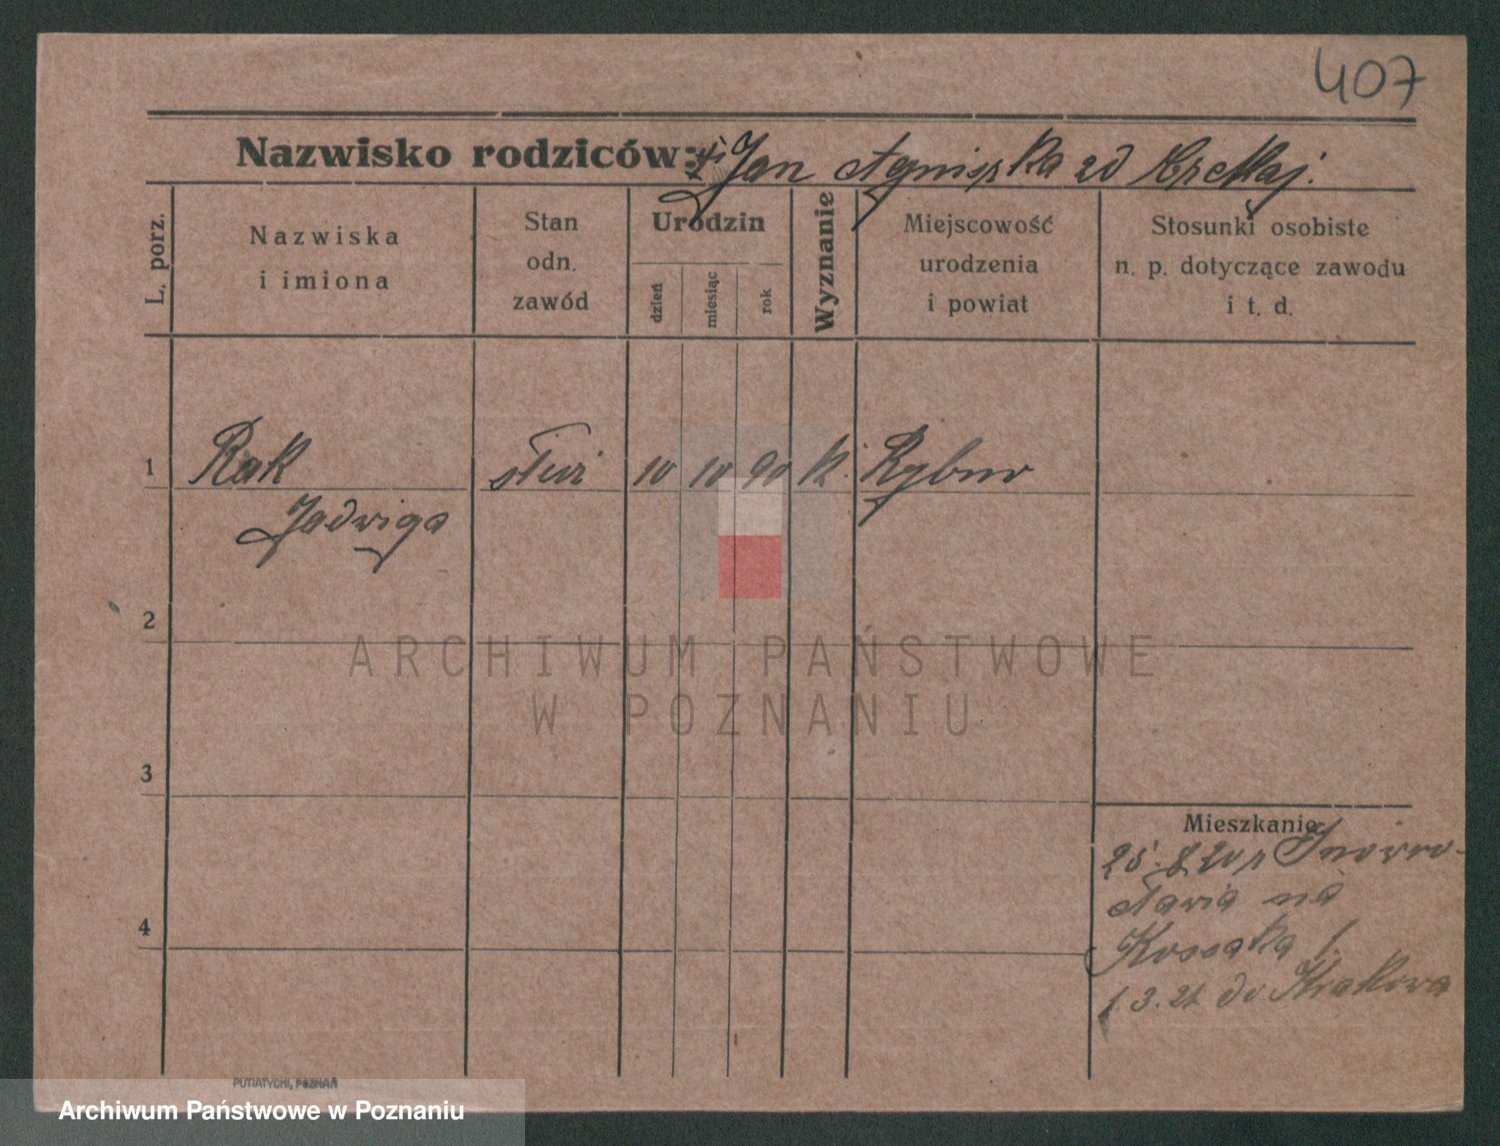 407
Nazwisko rodziców: Jan Agnieszka zd
L. porz.
Nazwiska
i imiona
Stan
odn.
zawód
Urodzin
dzień
miesiąc
rok
Wyznanie
Miejscowość
urodzenia
i powiat
Stosunki osobiste
n. p. dotyczące zawodu
i t. d.
1
Rak
10 10 90 k.
Rybno
Jadwiga
2
ARCHIWUM PAŃSTWOWE
W POZNANIU
3
Mieszkanie
25. 8 20 z Inowro-
cławia na
4
Kossaka 1.
1.3.21 do Krakowa
PUTIATYCKI, POZNAŃ
Archiwum Państwowe w Poznaniu